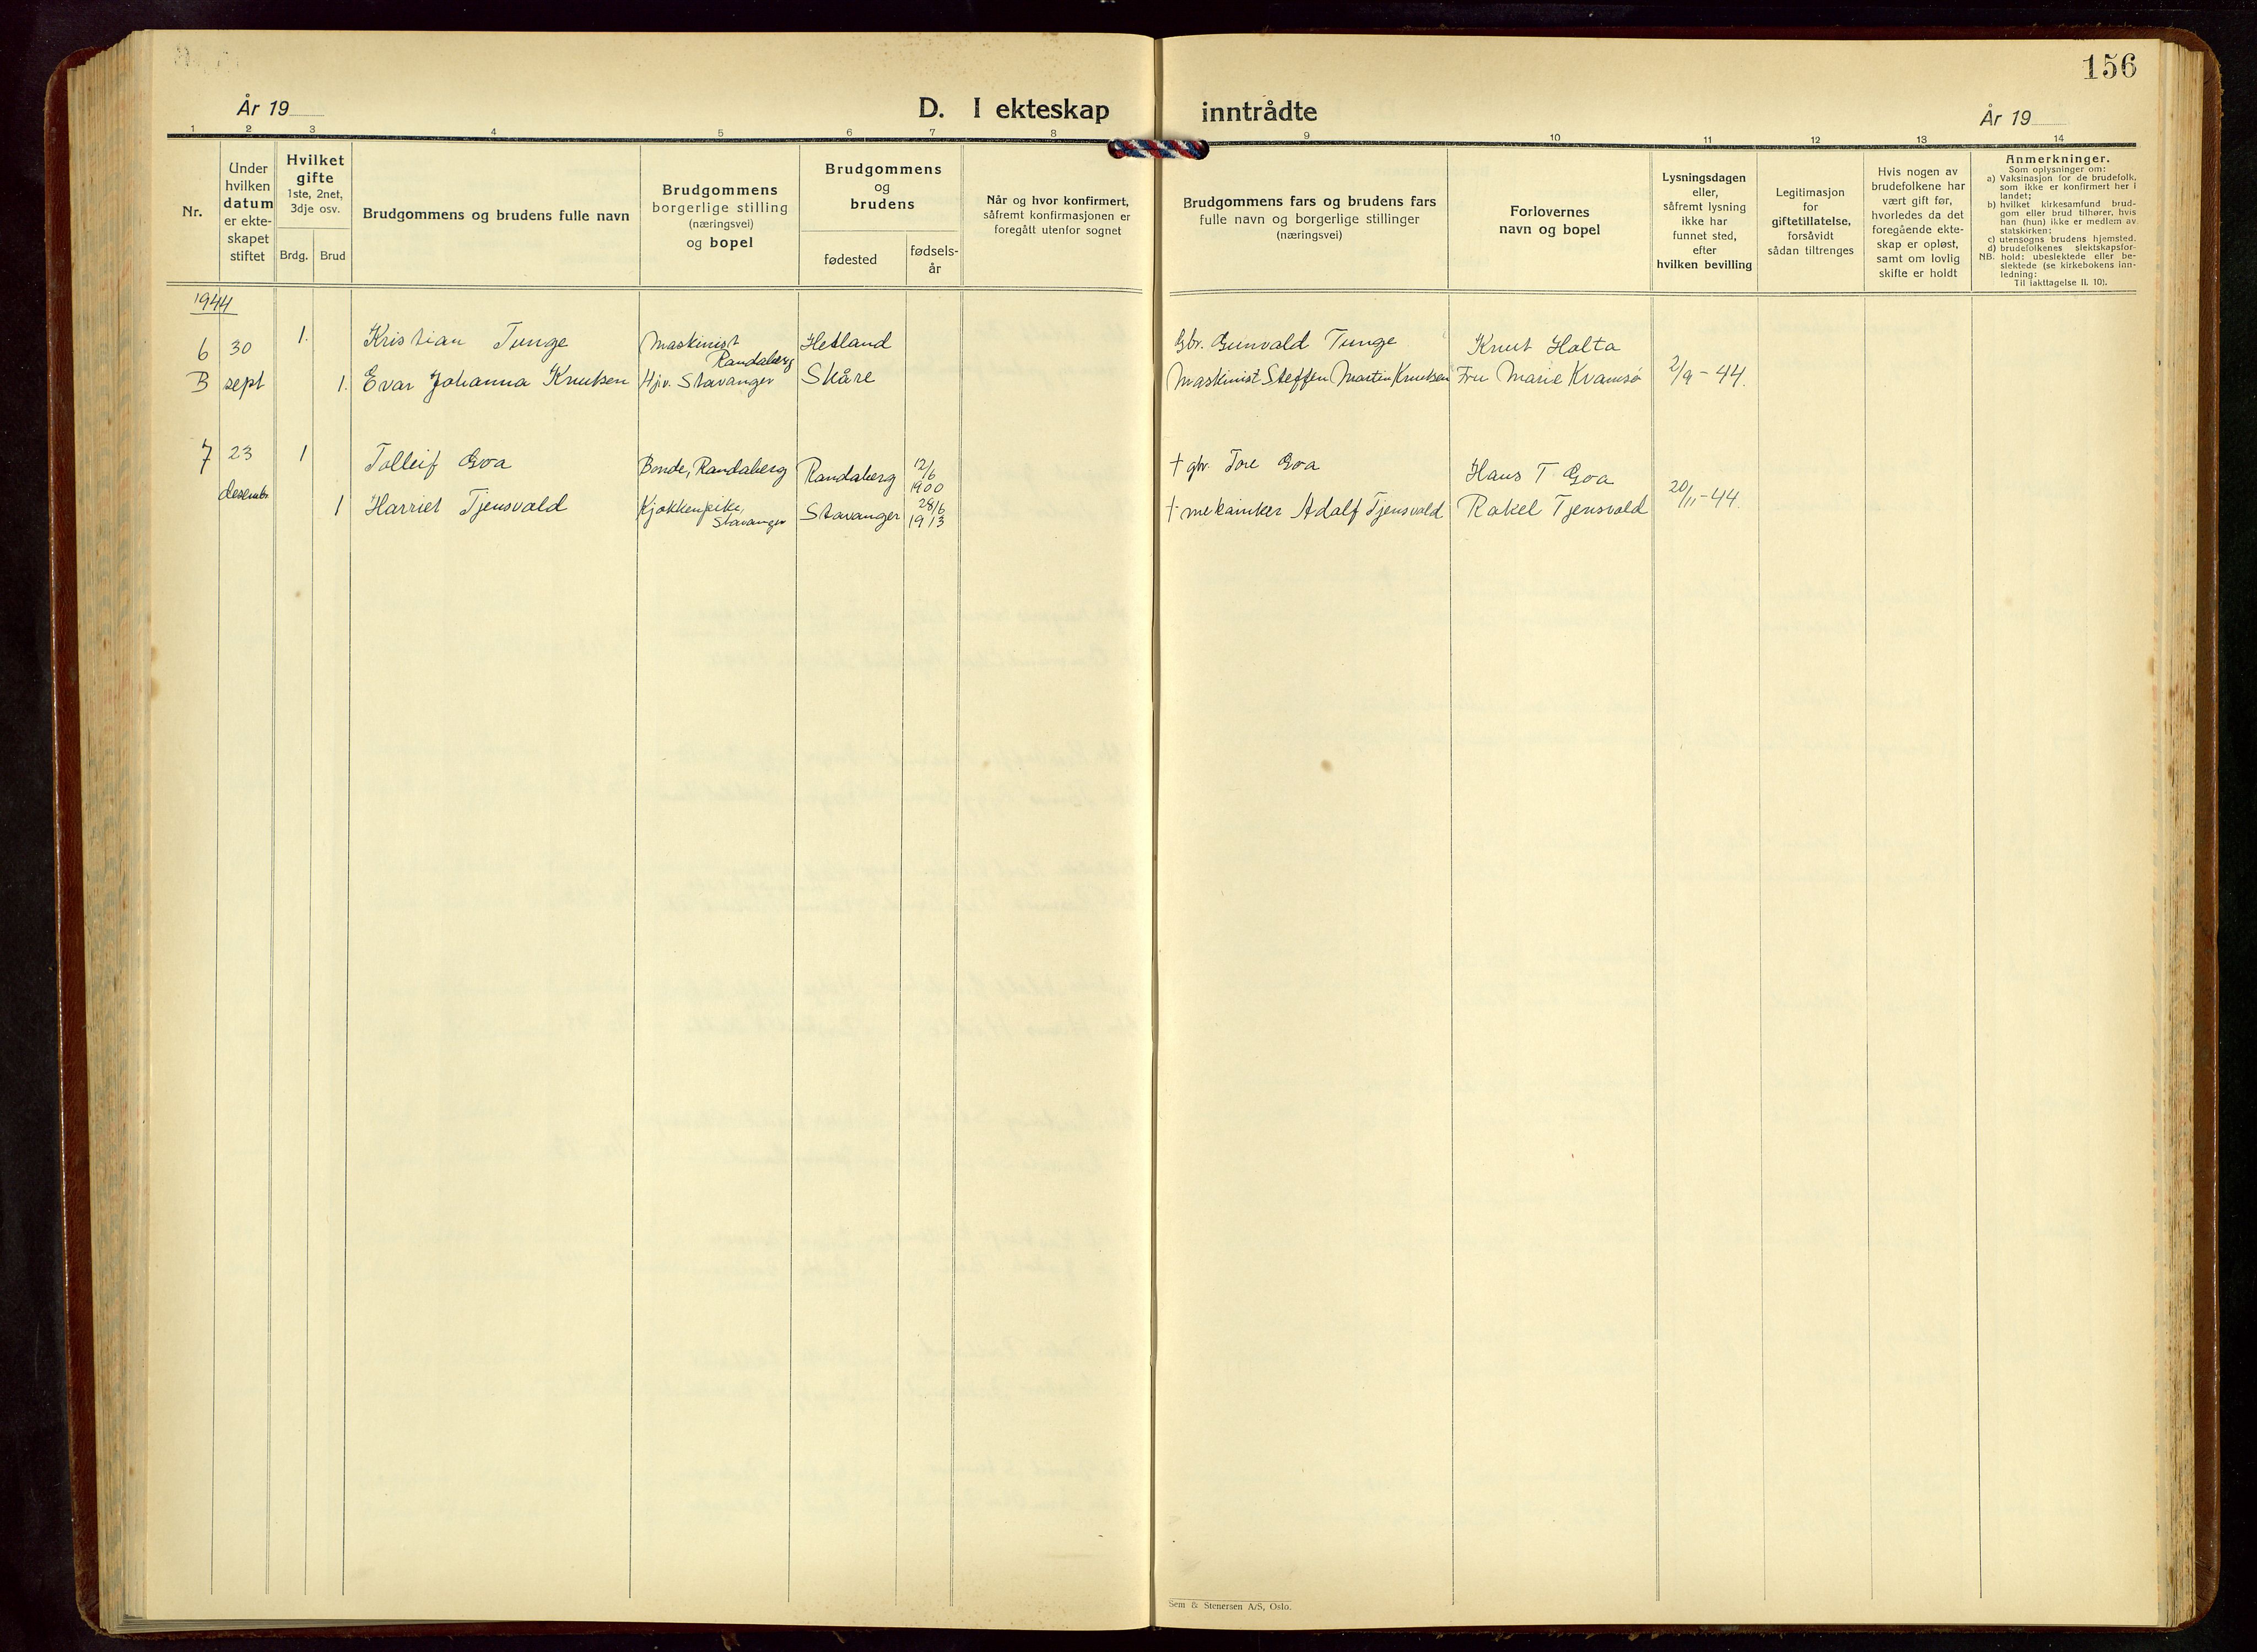 156
År 19
D. I ekteskap
inntrådte
År 19
1 2 3 4 5 6 7 8 9 10 11 12 13 14
Nr.
Under
hvilken
datum
er ekte-
skapet
stiftet
Hvilket
gifte
1ste, 2net,
3dje osv.
Brdg.
Brud
Brudgommens og brudens fulle navn
Brudgommens
borgerlige stilling
(næringsvei)
og bopel
Brudgommens
og
brudens
fødested
fødsels-
år
Når og hvor konfirmert,
såfremt konfirmasjonen er
foregått utenfor sognet
Brudgommens fars og brudens fars
fulle navn og borgerlige stillinger
(næringsvei)
Forlovernes
navn og bopel
Lysningsdagen
eller,
såfremt lysning
ikke har
funnet sted,
efter
hvilken bevilling
Legitimasjon
for
giftetillatelse,
forsåvidt
sådan tiltrenges
Hvis nogen av
brudefolkene har
vært gift før,
hvorledes da det
foregående ekte-
skap er opløst,
samt om lovlig
skifte er holdt
Anmerkninger.
Som oplysninger om:
a) Vaksinasjon for de brudefolk,
som ikke er konfirmert her i
landet;
b) hvilket kirkesamfund brud-
gom eller brud tilhører, hvis
han (hun) ikke er medlem av
statskirken;
c) utensogns brudens hjemsted.
d) brudefolkenes slektskapsfor-
NB. hold: ubeslektede eller be-
slektede (se kirkebokens inn-
ledning:
Til iakttagelse II. 10).
1944
6 30 1. Kristian Tunge Maskinist Randaberg Hetland Gbr. Gunvald Tunge Knut Holta
B sept 1. Evar Johanna Knutsen Hjv. Stavanger Skåre Maskinist Steffen Martin Knutsen Fru Marie Kvamsø 2/9-44.
7 23 1 Tolleif Goa Bonde, Randaberg Randaberg 12/6 1900 † gbr. Tore Goa Hans T Goa
desemb. 1 Harriet Tjensvold Kjøkkenpike, Stavanger Stavanger 28/6 1913 † mekainker Adolf Tjensvold Rakel Tjensvold 20/11-44.
Sem & Stenersen A/S, Oslo.